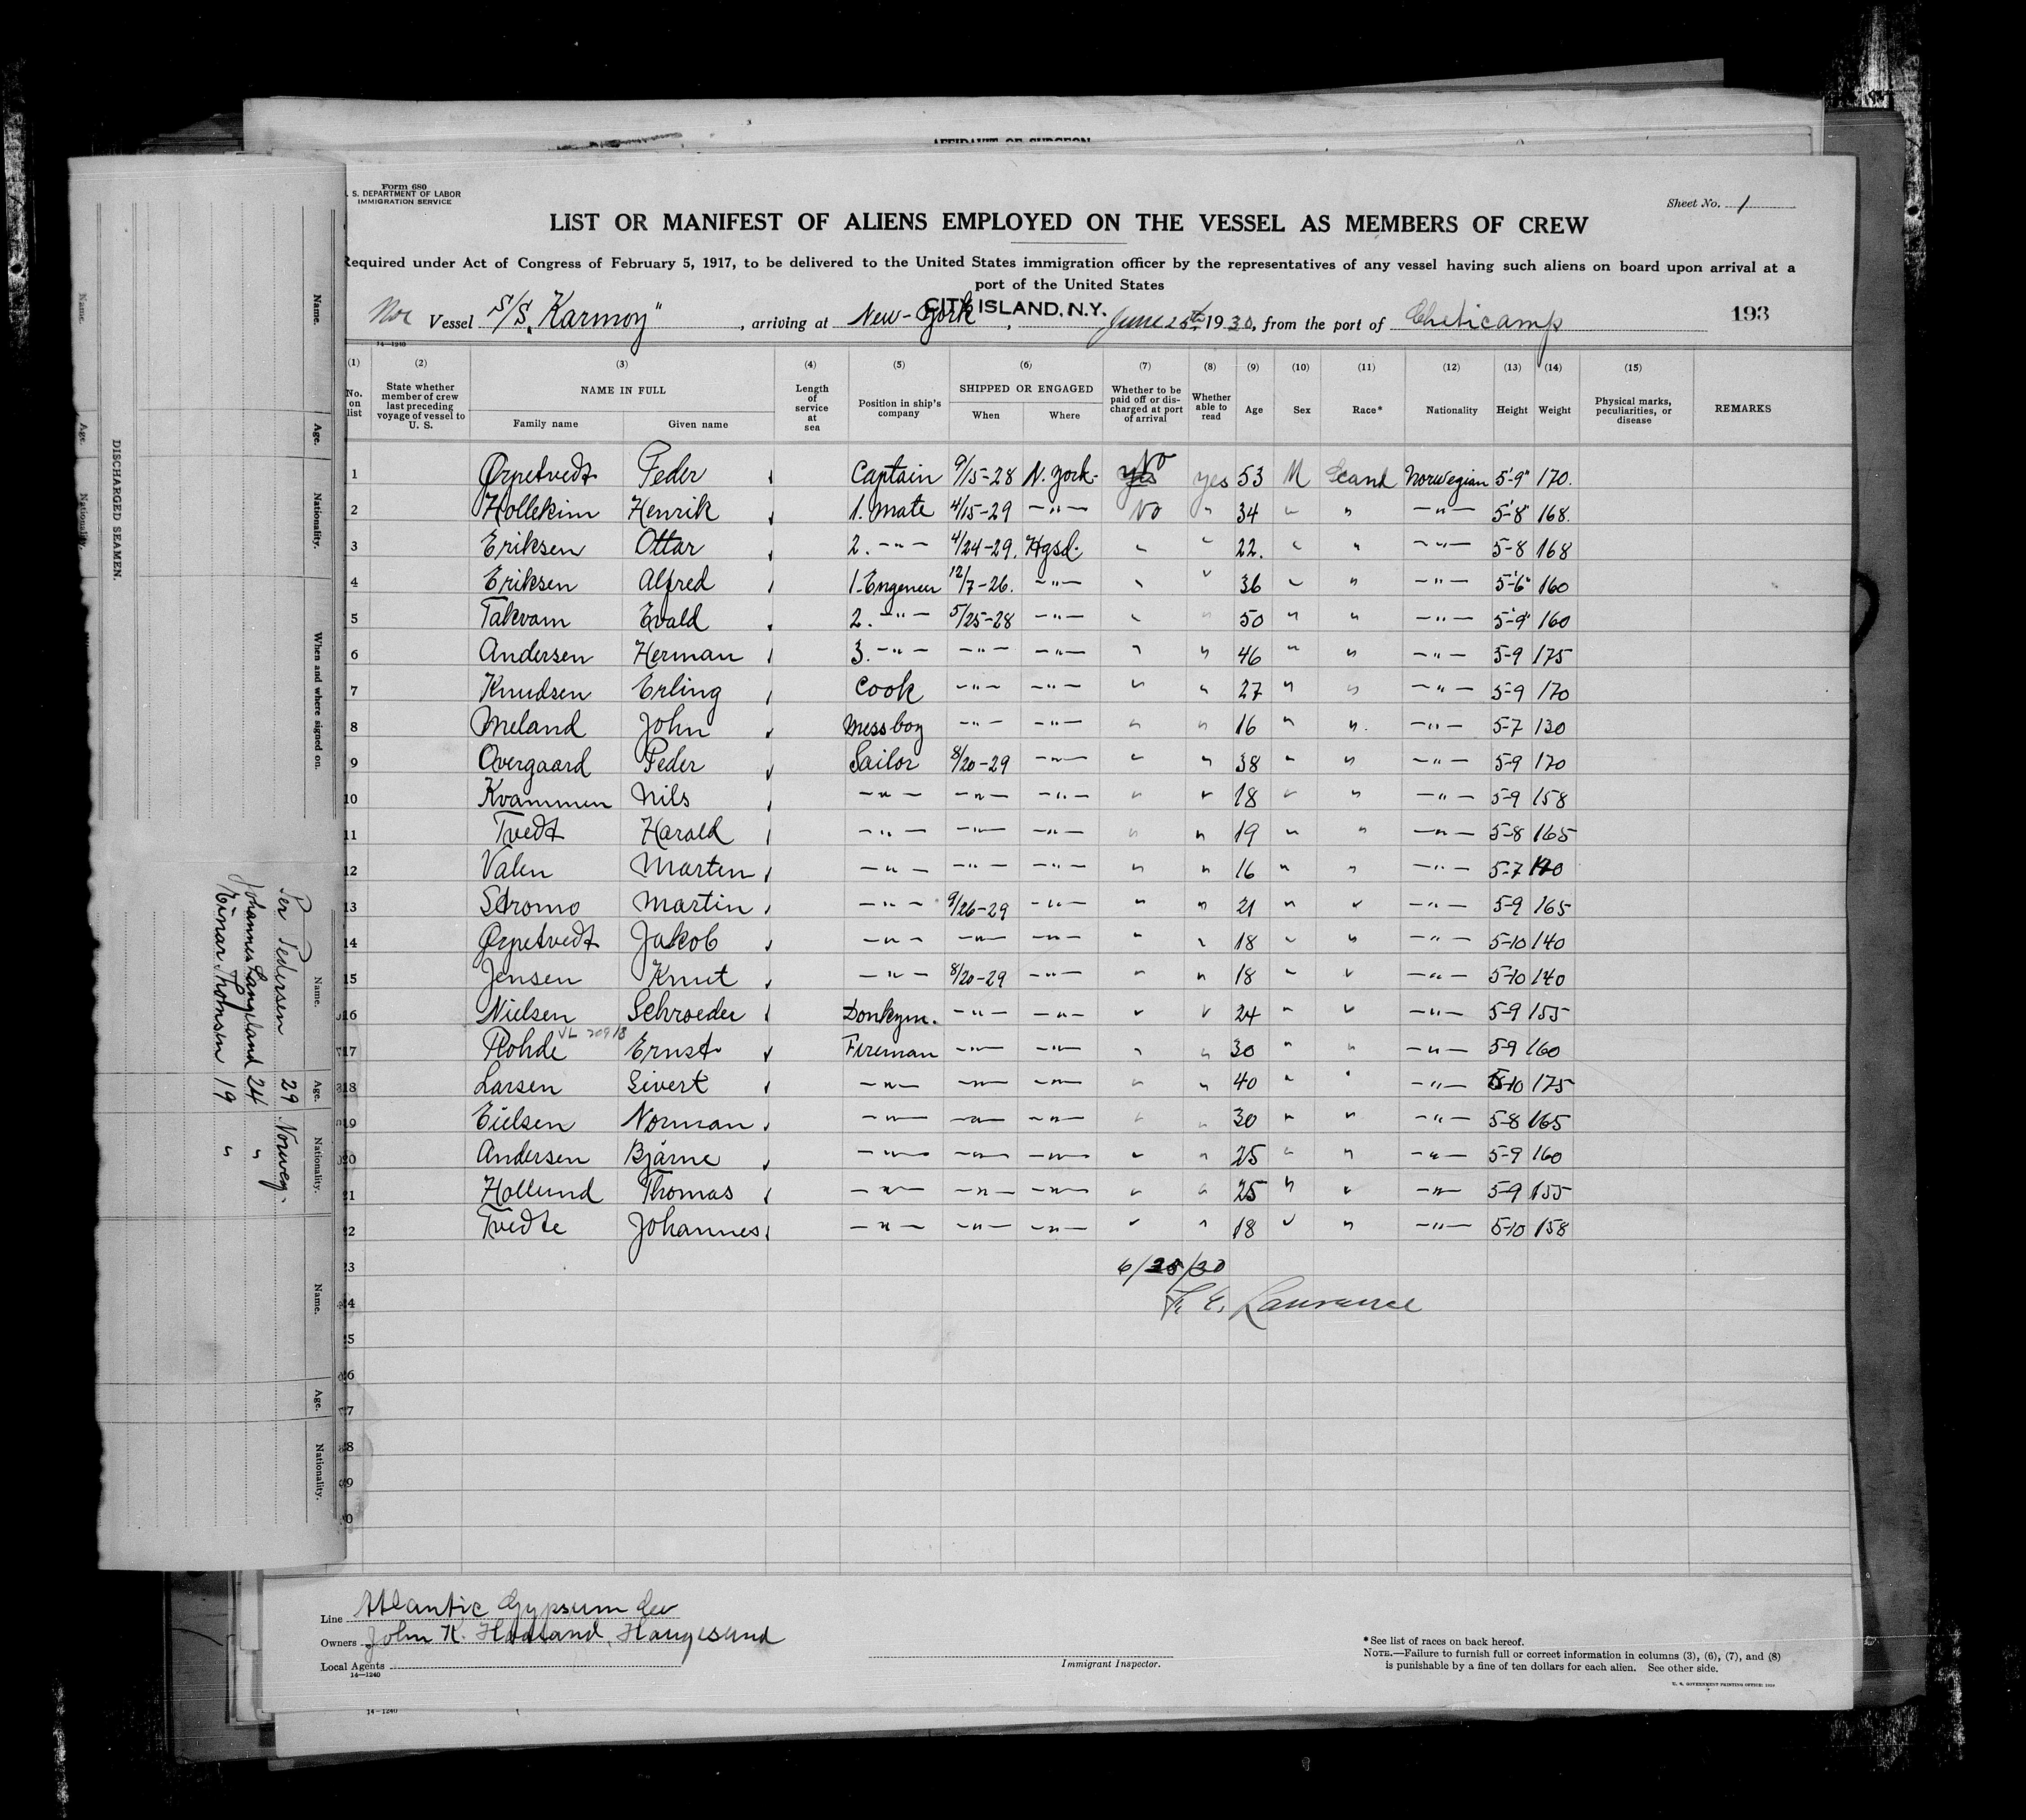 AFFIDAVIT OF SURGEON
Form 680
. S. DEPARTMENT OF LABOR
IMMIGRATION SERVICE
Sheet No. 1
LIST OR MANIFEST OF ALIENS EMPLOYED ON THE VESSEL AS MEMBERS OF CREW
Required under Act of Congress of February 5, 1917, to be delivered to the United States immigration officer by the representatives of any vessel having such aliens on board upon arrival at a
port of the United States
CITY ISLAND, N.Y.
Nor Vessel S/S „Karmoy", arriving at New-York, June 25th 1930, from the port of Cheticamp 193
14—1240
(1) (2) (3) (4) (5) (6) (7) (8) (9) (10) (11) (12) (13) (14) (15)
No. on list State whether member of crew last preceding voyage of vessel to U. S. NAME IN FULL Family name Given name Length of service at sea Position in ship's company SHIPPED OR ENGAGED When Where Whether to be paid off or discharged at port of arrival Whether able to read Age Sex Race* Nationality Height Weight Physical marks, peculiarities, or disease REMARKS
1 Ørpetvedt Peder Captain 9/15-28 N. York- yes No yes 53 M Scand Norwegian 5'-9" 170.
2 Hollekim Henrik 1. mate 4/15-29 —"— No " 34 " " —"— 5'-8" 168.
3 Eriksen Ottar 2. —"— 4/24-29. Hgsd. " " 22. " " —"— 5-8 168
4 Eriksen Alfred 1. Engeneer 12/7-26. —"— " " 36 " " —"— 5'-6" 160
5 Takvam Evald 2. —"— 5/25-28 —"— " " 50 " " —"— 5'-9" 160
6 Andersen Herman 3. —"— —"— —"— " " 46 " " —"— 5-9 175
7 Knudsen Erling Cook —"— —"— " " 27 " " —"— 5-9 170
8 Meland John Messboy —"— —"— " " 16 " " —"— 5-7 130
9 Overgaard Peder Sailor 8/20-29 —"— " " 38 " " —"— 5-9 170
10 Kvammen Nils —"— —"— —"— " " 18 " " —"— 5-9 158
11 Tvedt Harald —"— —"— —"— " " 19 " " —"— 5-8 165
12 Valen Marten —"— —"— —"— " " 16 " " —"— 5-7
13 Stromo Martin —"— 9/26-29 —"— " " 21 " " —"— 5-9 165
14 Ørpetvedt Jakob —"— —"— —"— " " 18 " " —"— 5-10 140
15 Jensen Knut —"— 8/20-29 —"— " " 18 " " —"— 5-10 140
16 Nielsen Schroeder Donkym. —"— —"— " " 24 " " —"— 5-9 155
VL 20918
17 Rohde Ernst Fireman —"— —"— " " 30 " " —"— 5-9 160
18 Larsen Sivert —"— —"— —"— " " 40 " " —"— 5-10 175
19 Eielsen Norman —"— —"— —"— " " 30 " " —"— 5-8 165
20 Andersen Bjarne —"— —"— —"— " " 25 " " —"— 5-9 160
21 Hollund Thomas —"— —"— —"— " " 25 " " —"— 5-9 155
22 Tvedte Johannes —"— —"— —"— " " 18 " " —"— 5-10 158
23
24
25
26
27
28
29
30
6/25/30
Lawrence
Line Atlantic Gypsum
Owners John K. Haaland, Haugesund
Local Agents
14—1240
Immigrant Inspector.
*See list of races on back hereof.
NOTE.—Failure to furnish full or correct information in columns (3), (6), (7), and (8)
is punishable by a fine of ten dollars for each alien. See other side.
14—1240
DISCHARGED SEAMEN.
Name. Age. Nationality. When and where signed on.
Name. Age. Nationality.
Per Pedersen 29 Norweg.
Johannes Langeland 24 "
Einar Thomsen 19 "
Name. Age. Nationality.
Name. Age. Nationality.